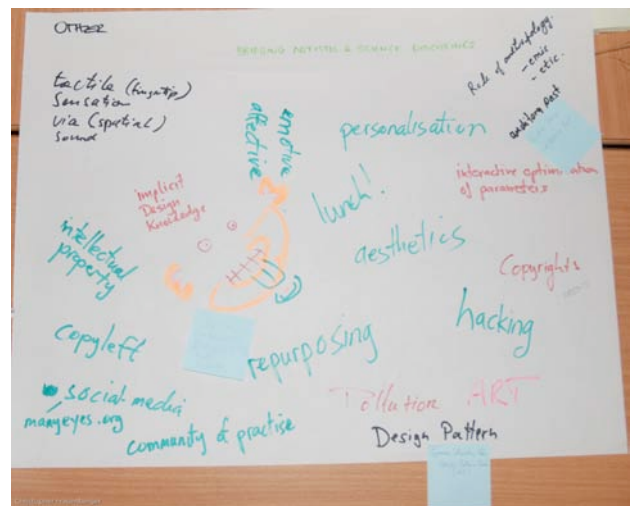 OTHER
tactile (fingertip)
Sensation
via (spatial)
Sound
Role of anthropology:
- emic
- etic.
emotive
affective
personalisation
implicit
Design
Knowledge
lunch!
interactive optimisation
of parameters
intellectual
property
aesthetics
Copyrights
hacking
copyleft
repurposing
social media
manyeyes.org
community of practise
Pollution
ART
Design Pattern